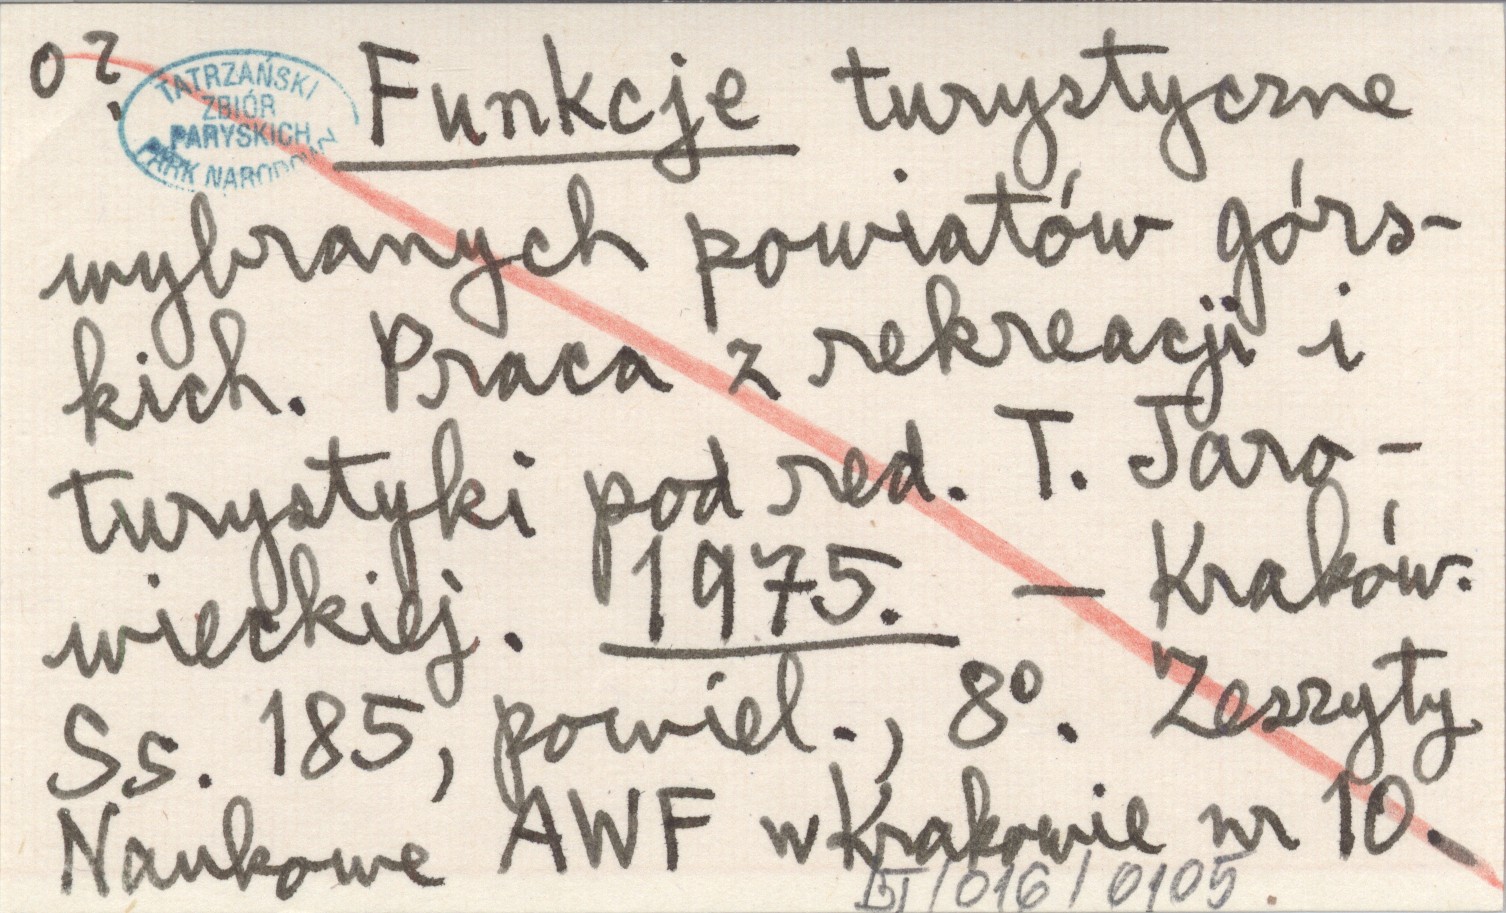 o?
TATRZAŃSKI
ZBIÓR
PARYSKICH
PARK NARODOWY
Funkcje turystyczne
wybranych powiatów górs-
kich. Praca z rekreacji i
turystyki pod red. T. Jaro-
wieckiej. 1975. — Kraków.
Ss. 185, powiel., 8º. Zeszyty
Naukowe AWF w Krakowie nr 10.
/016/0105